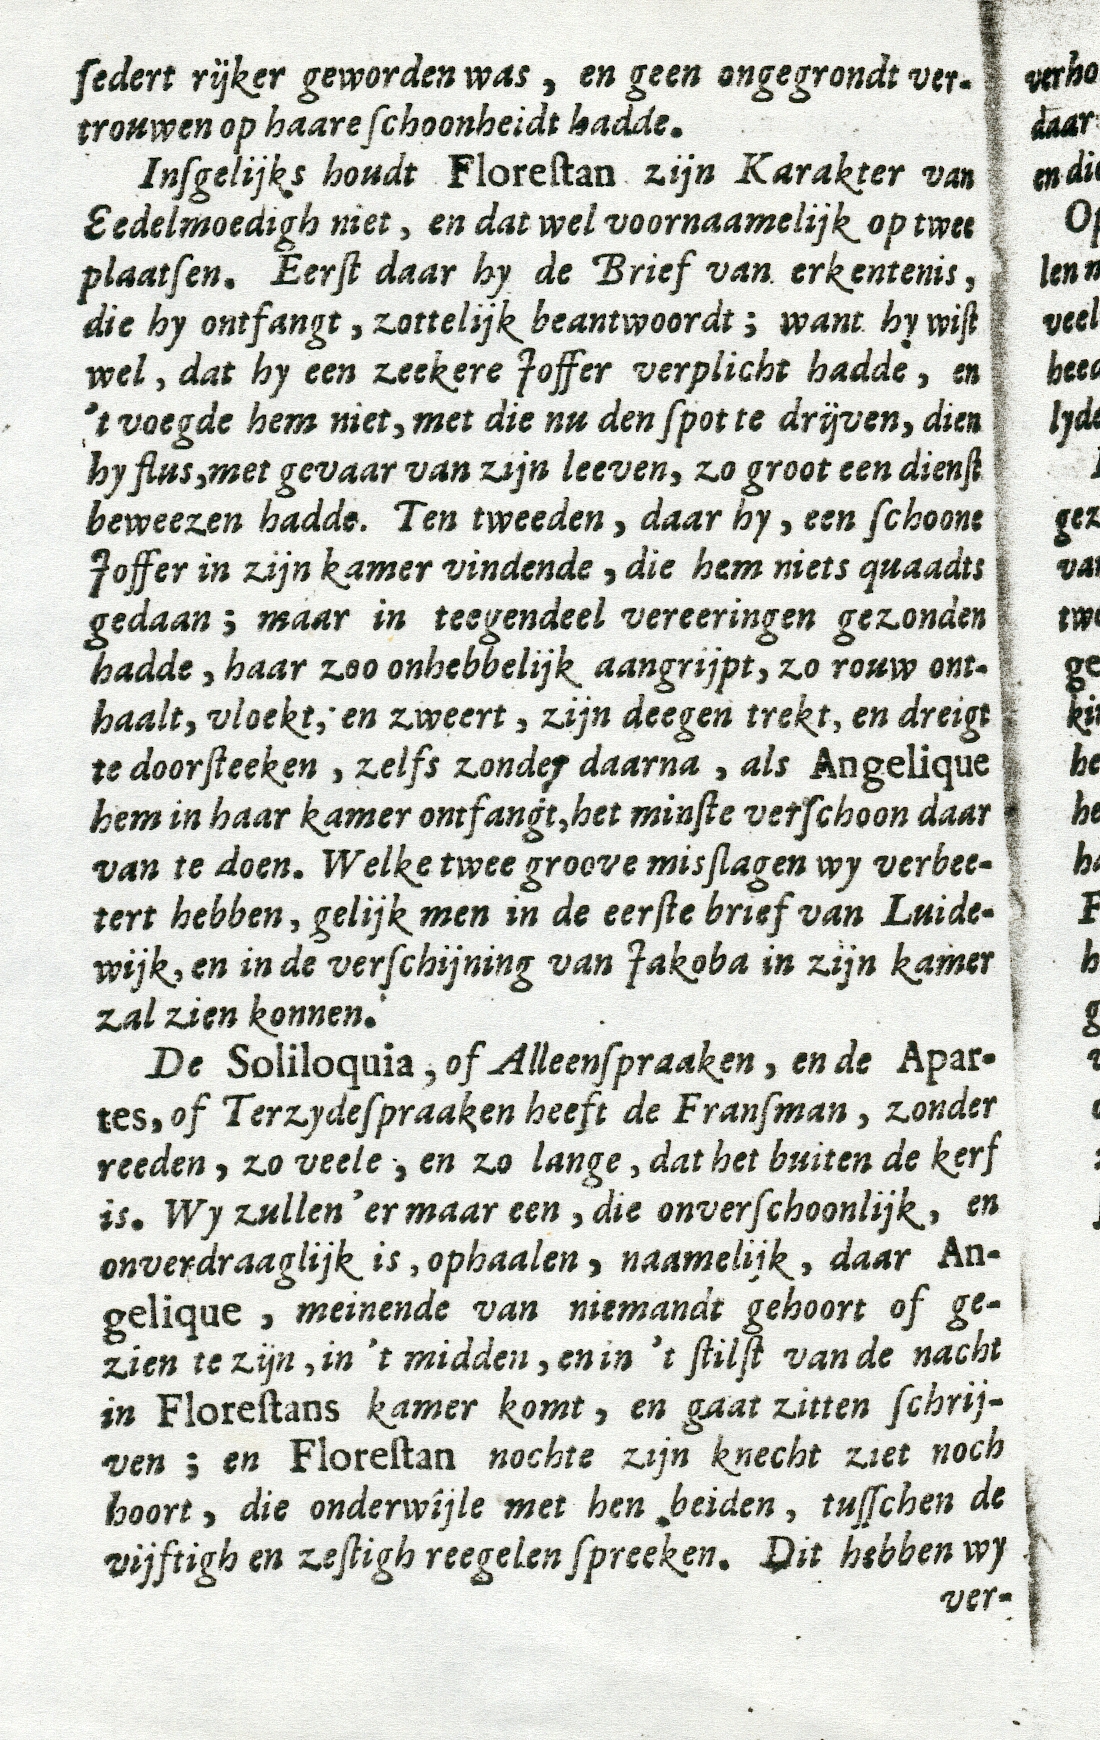 ſedert rijker geworden was, en geen ongegrondt ver-
trouwen op haare ſchoonheidt hadde.
Inſgelijks houdt Floreſtan zijn Karakter van
Eedelmoedigh niet, en dat wel voornaamelijk op twee
plaatſen. Eerſt daar hy de Brief van erkentenis,
die hy ontfangt, zottelijk beantwoordt; want hy wiſt
wel, dat hy een zeekere Joffer verplicht hadde, en
't voegde hem niet, met die nu den ſpot te drijven, dien
hy flus, met gevaar van zijn leeven, zo groot een dienſt
beweezen hadde. Ten tweeden, daar hy, een ſchoone
Joffer in zijn kamer vindende, die hem niets quaadts
gedaan; maar in teegendeel vereeringen gezonden
hadde, haar zoo onhebbelijk aangrijpt, zo rouw ont-
haalt, vloekt, en zweert, zijn deegen trekt, en dreigt
te doorſteeken, zelfs zonder daarna, als Angelique
hem in haar kamer ontfangt, het minſte verſchoon daar
van te doen. Welke twee groove misſlagen wy verbee-
tert hebben, gelijk men in de eerſte brief van Luide-
wijk, en in de verſchijning van Jakoba in zijn kamer
zal zien konnen.
De Soliloquia, of Alleenſpraaken, en de Apar-
tes, of Terzydeſpraaken heeft de Franſman, zonder
reeden, zo veele, en zo lange, dat het buiten de kerf
is. Wy zullen 'er maar een, die onverſchoonlijk, en
onverdraaglijk is, ophaalen, naamelijk, daar An-
gelique, meinende van niemandt gehoort of ge-
zien te zijn, in 't midden, en in 't ſtilſt van de nacht
in Floreſtans kamer komt, en gaat zitten ſchrij-
ven; en Floreſtan nochte zijn knecht ziet noch
hoort, die onderwîjle met hen beiden, tuſſchen de
vijftigh en zeſtigh reegelen ſpreeken. Dit hebben wy
ver-
verho
daar
en die
Op
len n
veel
heed
lyde
gez
van
twe
ge
kin
he
he
ha
F
h
g
v